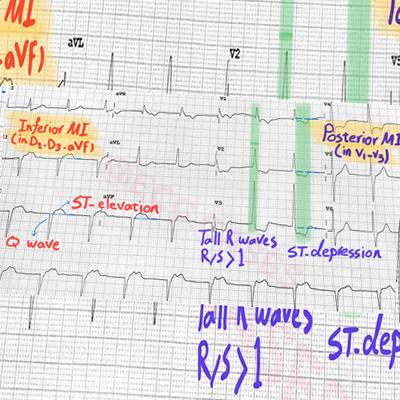 MI
aVf)
aVL
V2
V5
aVR
V1
V4
Inferior MI
(in D2-D3-aVf)
aVL
V2
Posterior MI
(in V1-V3)
ST-elevation
aVF
V3
V6
Q wave
Tall R waves
R/S>1
ST.depression
Tall R waves
R/S>1
ST.dep